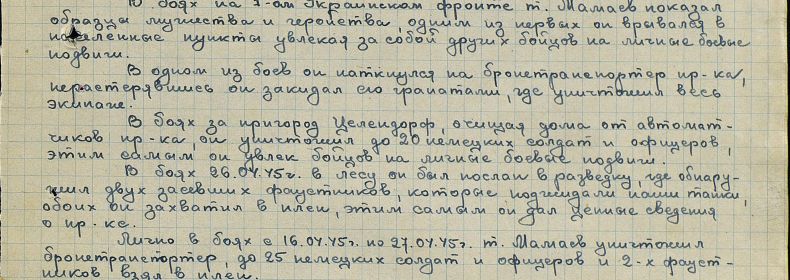 В боях на 1-ом Украинском фронте т. Мамаев показал
образцы мужества и геройства, одним из первых он врывался в
населённые пункты увлекая за собой других бойцов на личные боевые
подвиги.
В одном из боев он наткнулся на бронетранспортер пр-ка,
нерастерявшись он закидал его гранатами, где уничтожил весь
экипаж.
В боях за пригород Целендорф, очищая дома от автомат-
чиков пр-ка, он уничтожил до 20 немецких солдат и офицеров,
этим самым он увлек бойцов на личные боевые подвиги.
В боях 26.04.45г. в лесу он был послан в разведку, где обнару-
жил двух засевших фаустников, которые поджидали наши танки,
обоих он захватил в плен, этим самым он дал ценные сведения
о пр-ке.
Лично в боях с 16.04.45г. по 27.04.45г. т. Мамаев уничтожил
бронетранспортер, до 25 немецких солдат и офицеров и 2-х фауст-
ников взял в плен.